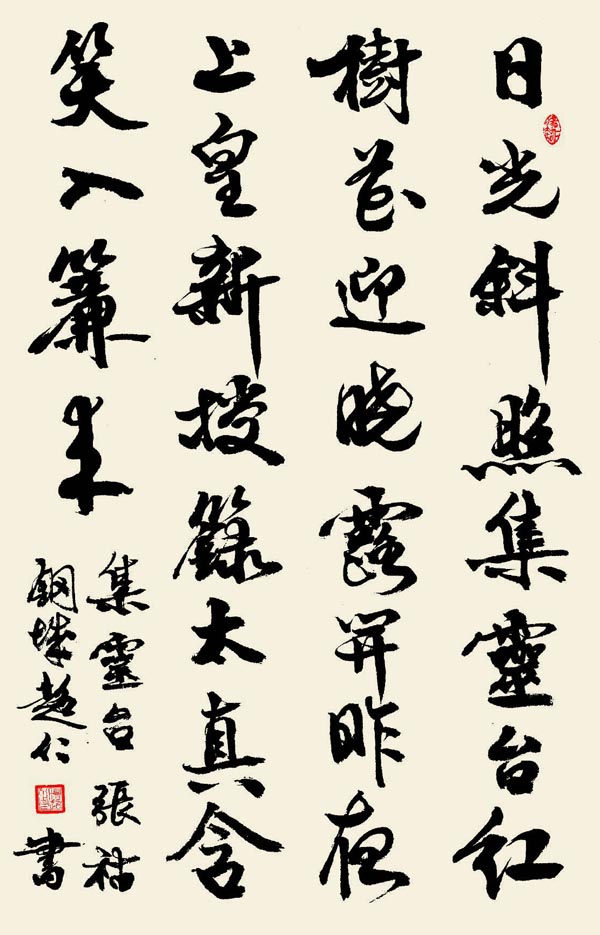 日光斜照集靈台紅
樹花迎曉露開昨夜
上皇新授籙太真含
笑入簾來
集靈台 張祜
鋼城超仁 書